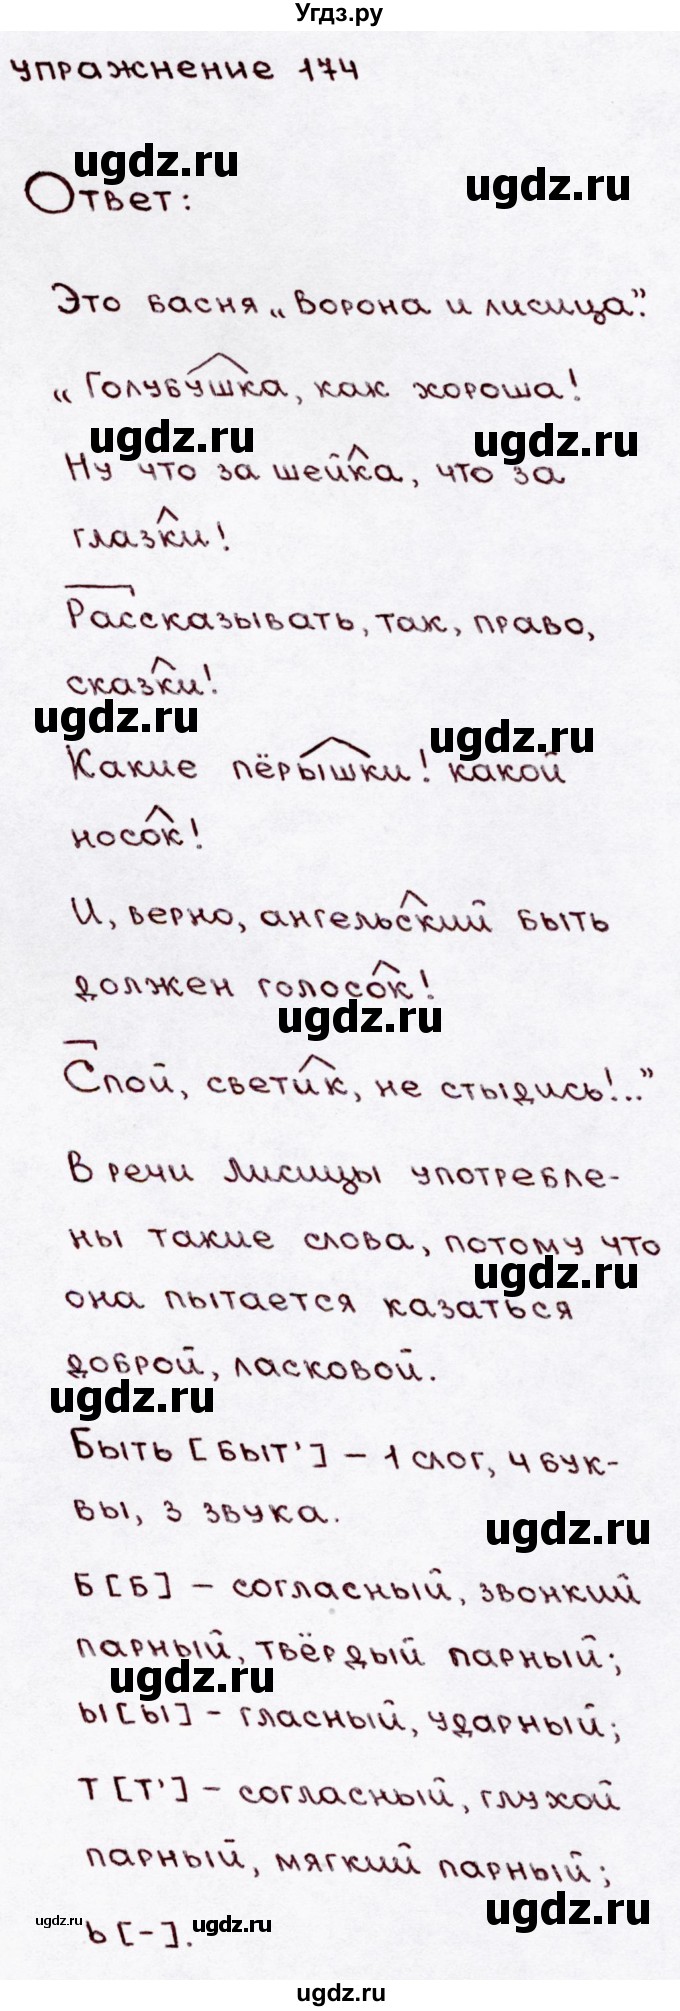 Угдз.ру
упражнение 174
ugdz.ru
ugdz.ru
Ответ:
Это басня „Ворона и лисица".
„Голубушка, как хороша!
ugdz.ru
ugdz.ru
Ну что за шейка, что за
глазки!
Рассказывать, так, право,
сказки!
ugdz.ru
ugdz.ru
Какие пёрышки! какой
носок!
И, верно, ангельский быть
должен голосок!
ugdz.ru
Спой, светик, не стыдись!.."
В речи Лисицы употребле-
ны такие слова, потому что
ugdz.ru
она пытается казаться
доброй, ласковой.
ugdz.ru
Быть [быт'] – 1 слог, 4 бук-
вы, 3 звука.
ugdz.ru
Б [б] – согласный, звонкий
парный, твёрдый парный;
ugdz.ru
ы [ы] – гласный, ударный;
т [т'] – согласный, глухой
парный, мягкий парный;
ugdz.ru
ugdz.ru
ugdz.ru
ь [-].
ugdz.ru